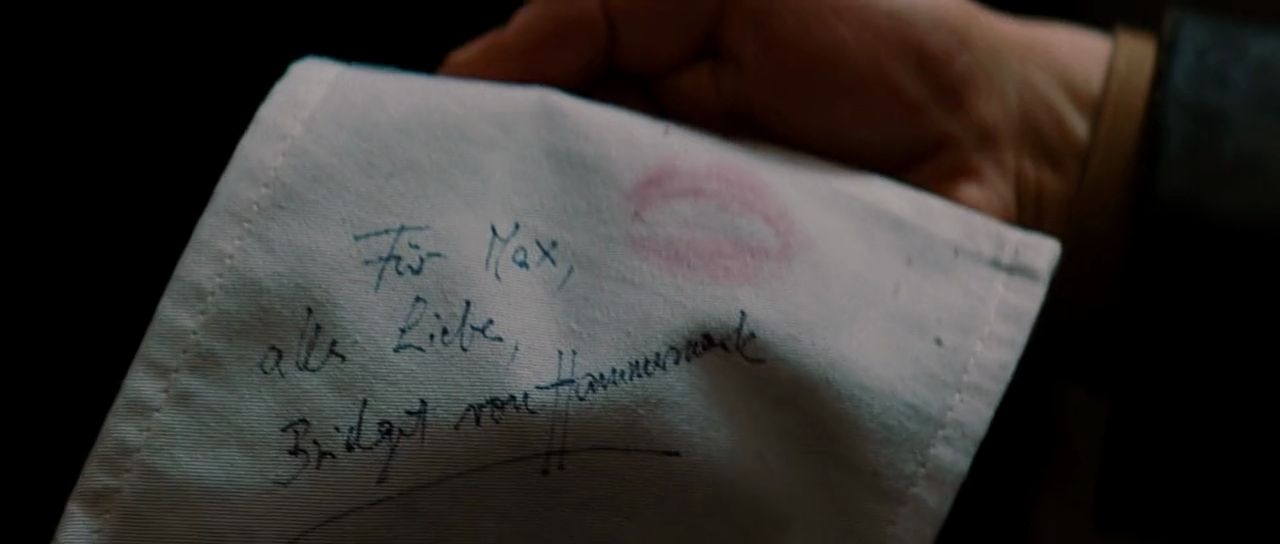 Für Max,
alles Liebe,
Bridget von Hammersmark